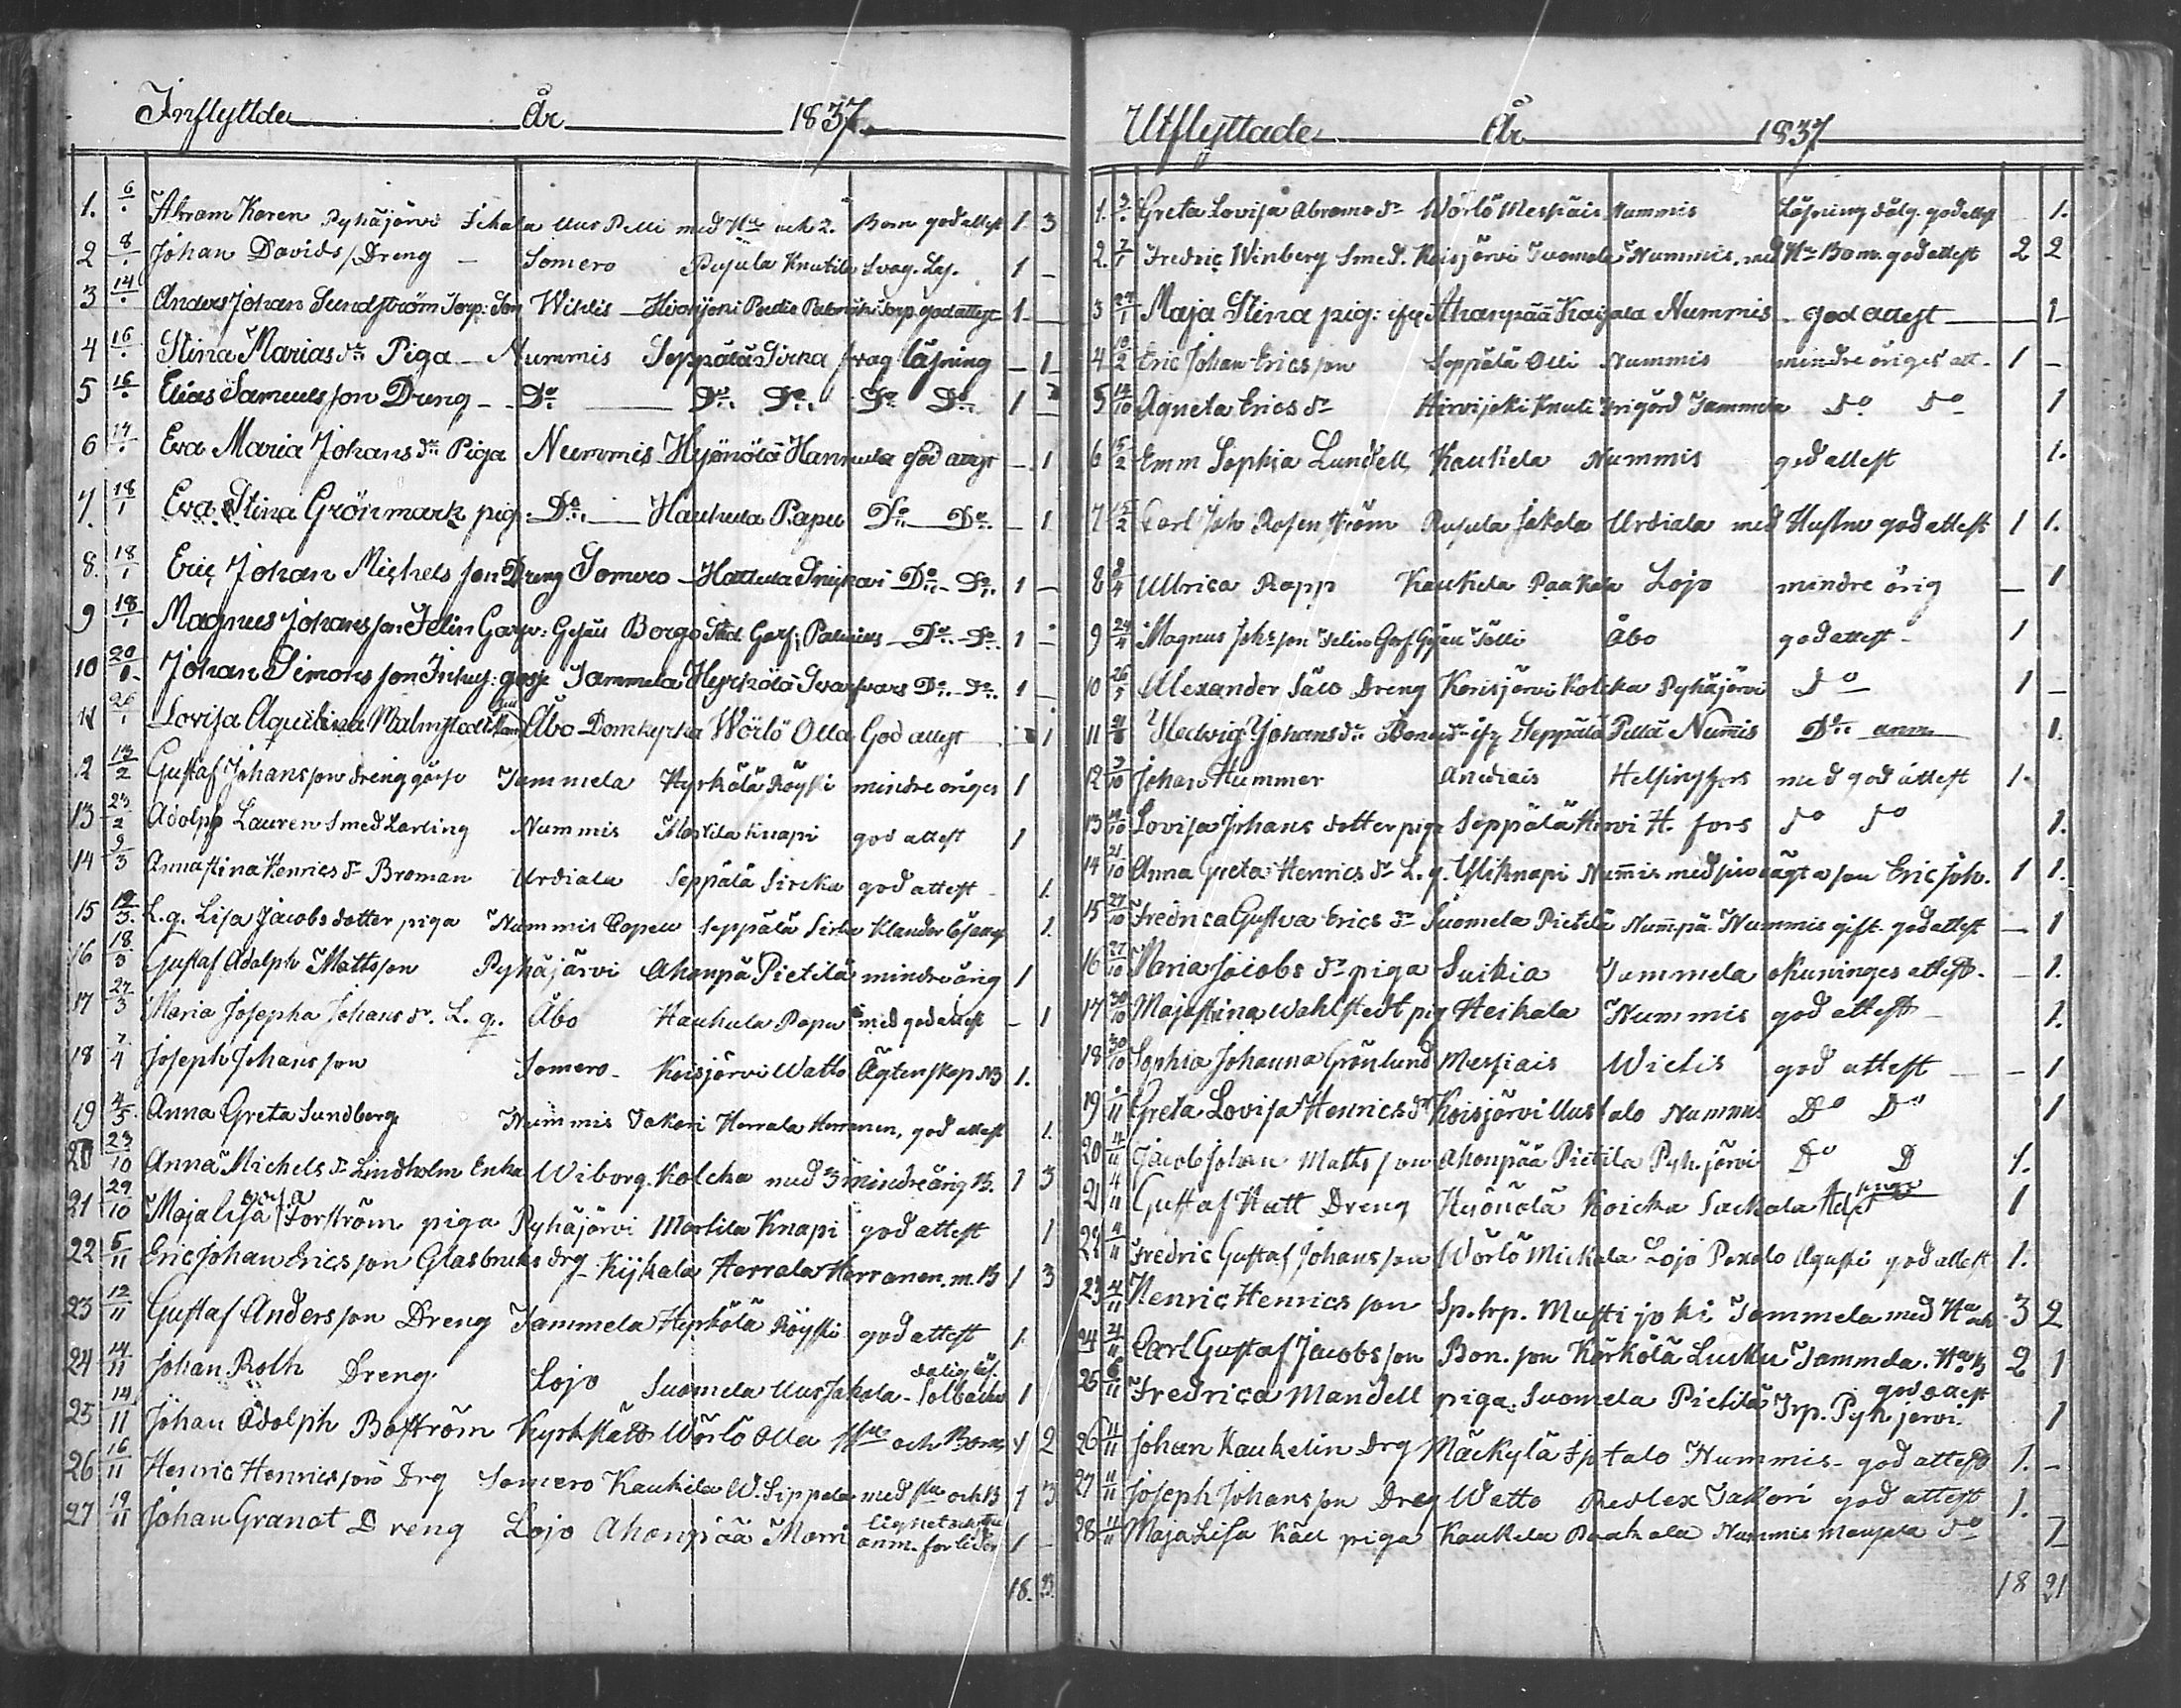 Inflyttde År 1837
1. 6/. Abram Karen Pyhäjärvi Uus Pelli med Hu och 2. Barn god attest 1. 3
2 8/. Johan Davids/Dreng – Somero Pusula Knutila svag. Läs. 1 –
3 14/. Anders Johan Sundström Torp: Son Wihtis – Hirvijoki Torp. god attest 1 –
4 16/. Stina Marias dr Piga – Nummis Seppälä Sirka svag läsning – 1
5 16/. Elias Samuelsson Dreng – Do Do Do Do Do 1
6 17/. Eva Maria Johans dr Piga Nummis Hyönölä Hannula god attest – 1
7. 18/1 Eva Stina Grönmark pig: Do Haukela Papu Do Do – 1
8. 18/1 Eric Johan Michels son Dreng Somero – Hattula Do Do 1 –
9 18/1 Magnus Johansson Felin Garfv: Gesäll Borgo Stad Garf: Do Do 1 –
10 20/1 Johan Simonsson Inhys: gosse Tammela Hyrkölä Do Do 1 –
11 26/1 Lovisa Aquilina Malmstedt Åbo Domkyrka Wörlö Olla God attest 1
12 13/2 Gustaf Johansson drenggåsse Tammela Hyrkölä Röyski mindreåriges 1
13 23/2 Adolph Lauren Smed Larling Nummis Marttila Knapi god attest 1
14 9/3 Anna Stina Henrics dr Broman Urdiala Seppälä Sircka god attest – 1.
15 12/3. L.q. Lisa Jacobs dotter piga Nummis seppälä Sirka 1.
16 18/3 Gustaf Adolph Mattsson Pyhäjärvi Ahonpä Pietilä mindreårig 1
17 27/3 Maria Josepha Johans dr. L. q. Åbo Haukula Papu med god attest – 1
18 7/4 Joseph Johansson Somero – Koisjärvi Watto Ägtenskap NB 1.
19 4/5. Anna Greta Sundberg Nummis Jakori Herrala Herranen, god attest 1.
20 23/10 Anna Michels dr Lindholm Enka Wiborg. Kolcka med 3 mindreårig B. 1 3
21 29/10 Maja lisa Torström piga Pyhäjärvi Martila Knapi god attest 1
22 5/11 Eric Johan Ericsson Glasbruks drg Kijkala Herrala Herranen. m. B 1 3
23 12/11 Gustaf Andersson Dreng Tammela Hyrkölä Röyski god attest 1.
24 14/11 Johan Roth Dreng Lojo Suomela Uus Jakola – dalig läs. 1
25 14/11 Johan Adolph Boström Kyrkslätt Wörlö Olla Hu och Barn 1 2
26 16/11 Henric Henricsson Drg Somero Kaukela W. Sippola med Hu och B 1 3
27 19/11 Johan Granat Dreng Lojo Ahonpää Morri 1 –
18. 23.
Utflyttade År 1837
1. Greta Lovisa Abrams dr Wörlö Messiais Nummis Läsning dålg. god attest 1.
2. 7/1 Fredric Winberg Smed. Koisjärvi Suomela Nummis. med Hu Barn. god attest 2 2
3 27/1 Maja Stina pig: Ahonpää Kaijala Nummis god attest 1
4 10/2 Eric Johan Ericsson Seppälä Olli Nummis mindre åriges att. 1 –
5 12/10 Agneta Erics dr Hirvijoki Knuti Tammela do do 1
6 15/2 Emm Sophia Lundell Kaukela Nummis god attest 1.
7 15/2 Carl Joh Rosenström Pusula Jakola Urdiala med Hustru god attest 1 1.
8 8/4 Ullrica Rapp Kaukela Paakala Lojo mindre årig – 1
9 24/4 Magnus Johsson Felin Garf Gesäll Tälli Åbo god attest – 1
10 26/5 Alexander Säco Dreng Koisjärvi Kolcka Pyhäjärvi do 1 –
11 21/8 Hedvig Johans dr Seppälä Pellä Nummis Do 1.
12 3/10 Johan Hummer Andiais Helsingfors med god attest 1.
13 14/10 Lovisa Johans dotter piga Seppälä Hirvi H. fors do do 1.
14 21/10 Anna Greta Henrics dr L. q. Uliknapi Nummis med sin oägta son Eric Joh. 1 1.
15 27/10 Fredrica Gustva Erics dr Suomela Pietilä Nummis gift. god attest – 1
16 27/10 Maria Jacobs dr piga Suikia Tammela attest. – 1.
17 30/10 Maja Stina Wahlstedt pig Heikala Nummis god attest – 1.
18 30/10 Sophia Johanna Grönlund Messiais Wichtis god attest – 1
19 1/11 Greta Lovisa Henrics dr Koisjärvi Uustalo Nummis Do Do 1
20 4/11 Jacob Johan Mattsson Ahonpää Pietila Pyh. järvi Do D 1.
21 4/11 Gustaf Hatt Dreng Hyönölä Koicka Sackala 1
22 4/11 Fredric Gustaf Johansson Wörlö Mickala Lojo god attest 1.
23 4/11 Henric Henricsson Sp. trp. Mustijoki Tammela med Ha och 3 2
24 4/11 Carl Gustaf Jacobsson Bon. son Körkölä Tammela. Ha B 2 1
25 6/11 Fredrica Mandell piga. Suomela Pietilä Trp. Pyhjervi. god attest 1
26 11/11 Johan Kaukelin Drg Mäckylä Nummis – god attest 1. –
27 11/11 Joseph Johansson Dreg Watto Jakori god attest 1.
28 11/11 Maja Lisa Käll piga Kaukela Paakala Nummis do 1
18 21